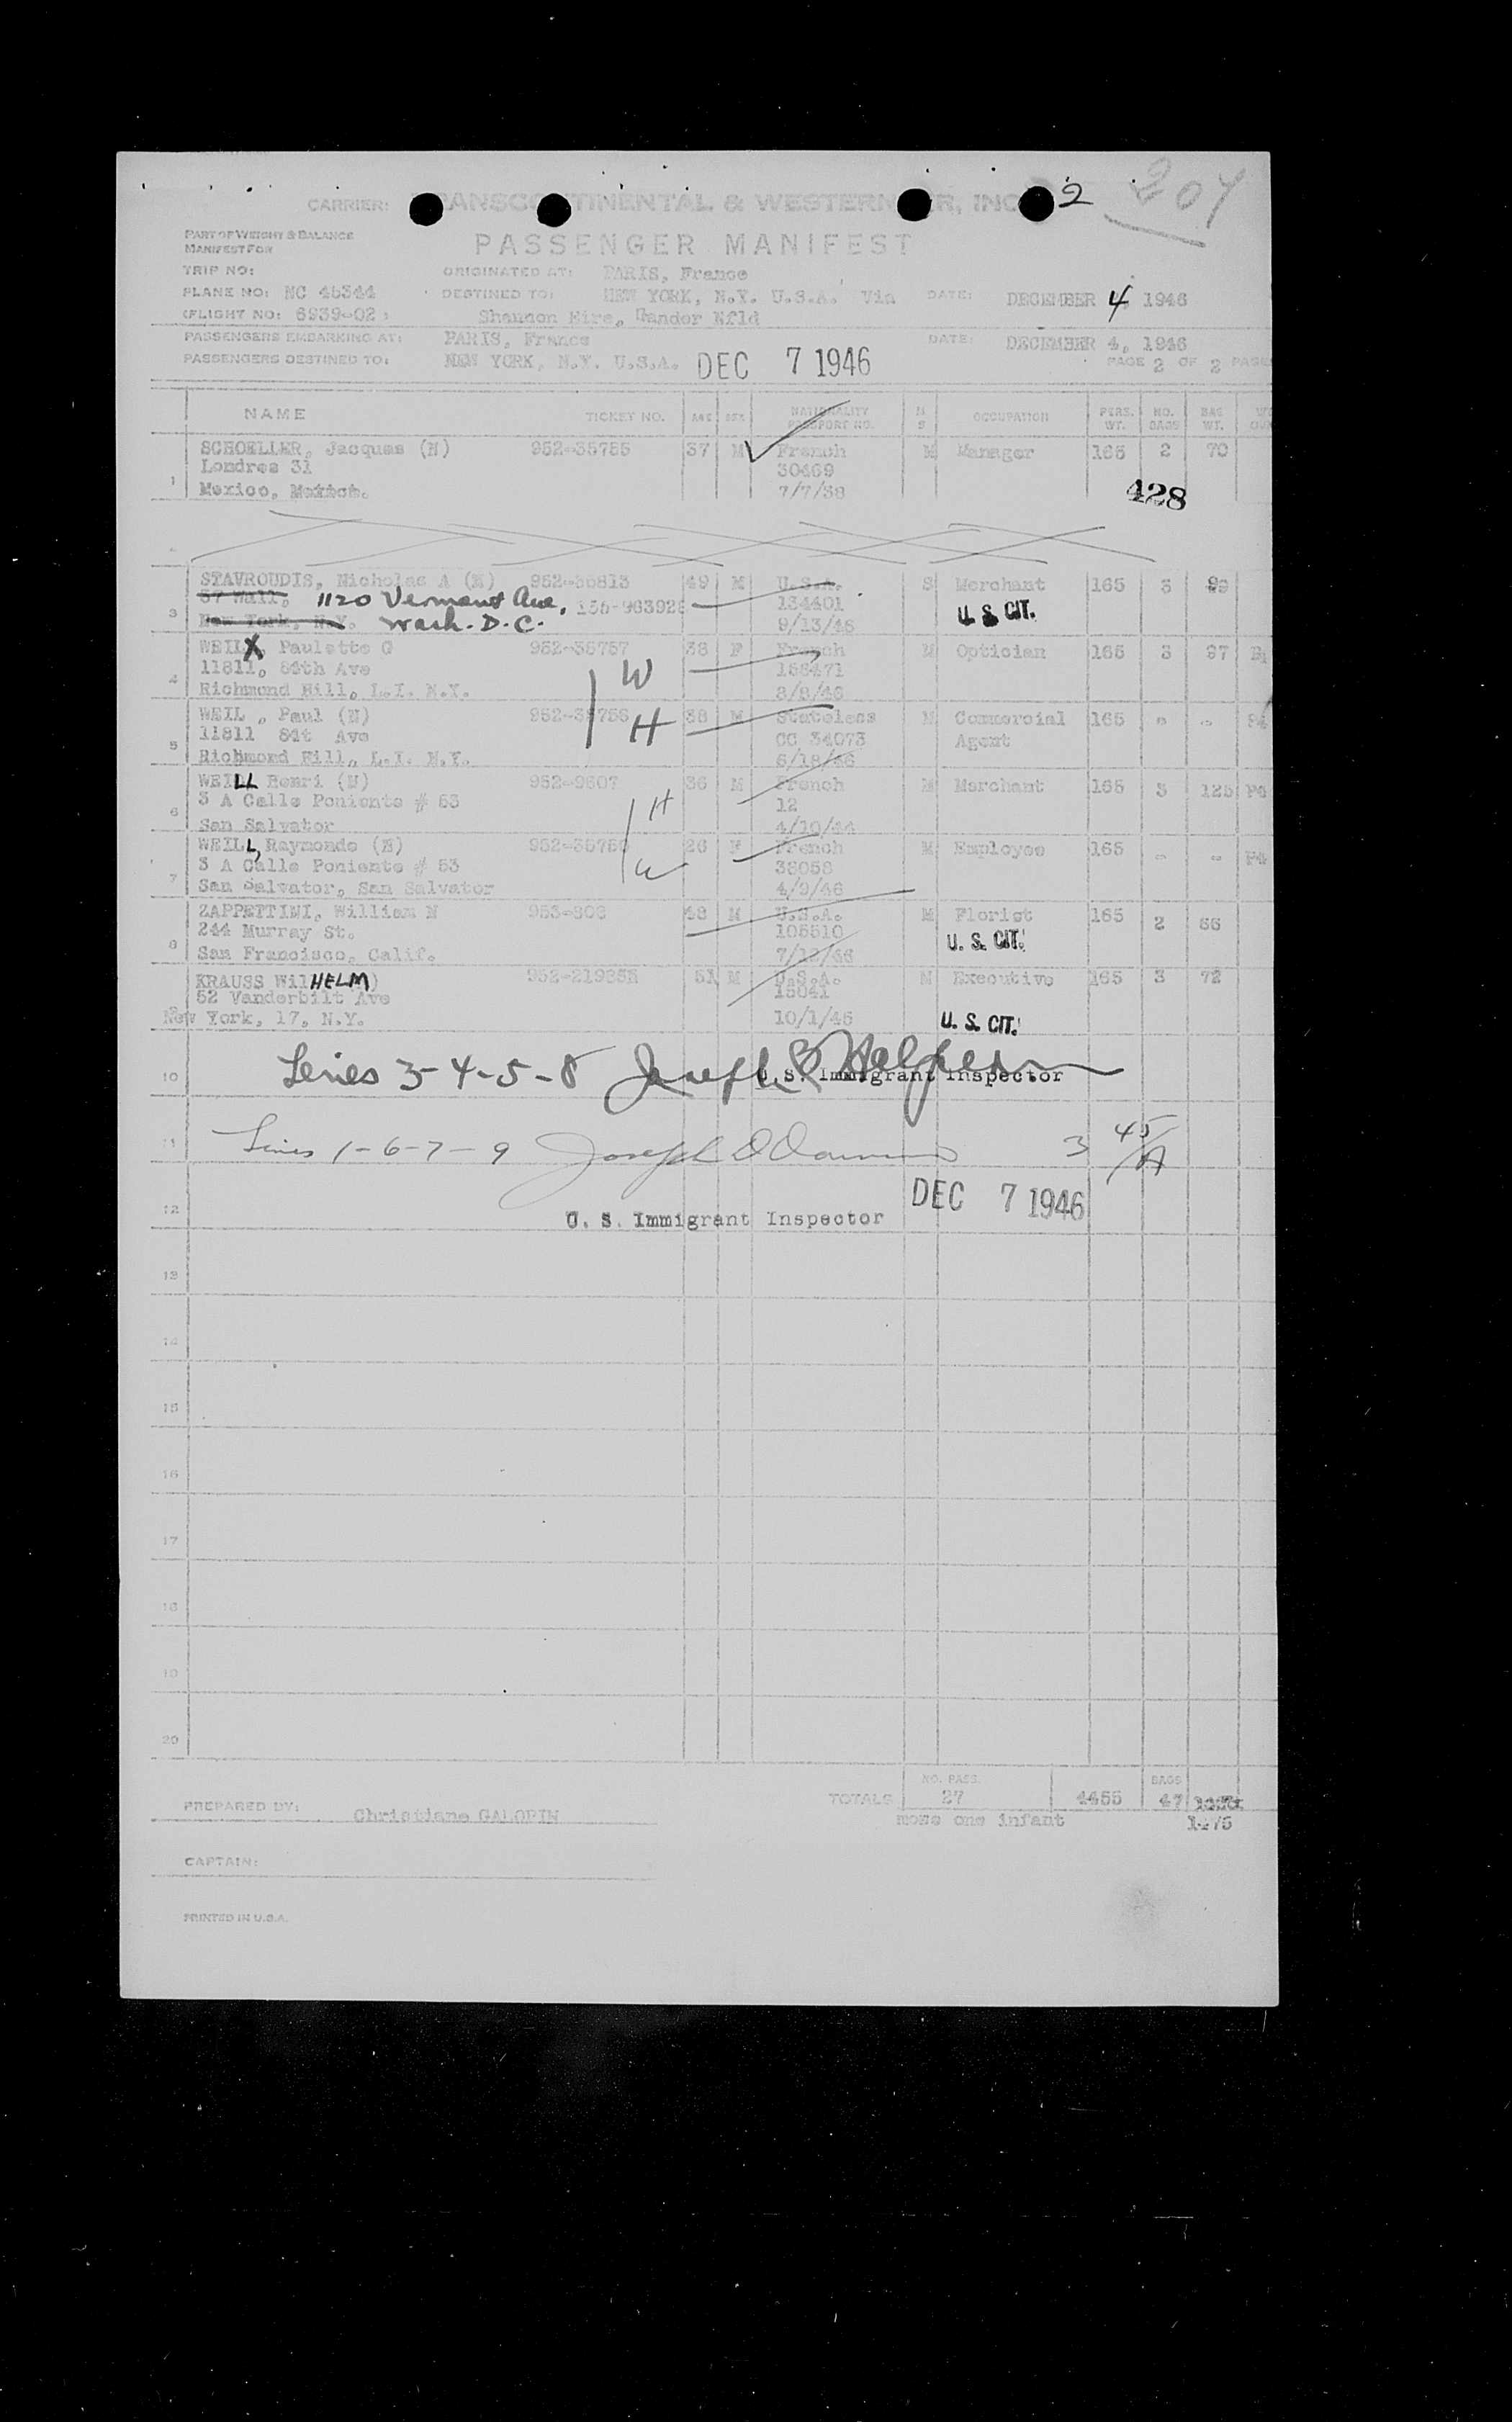 2 204
CARRIER: ANSCO TINENTAL & WESTERN R, INC
PART OF WEIGHT & BALANCE
MANIFEST FOR
PASSENGER MANIFEST
TRIP NO: ORIGINATED AT: PARIS, France
PLANE NO: NC 45344 DESTINED TO: NEW YORK, N.Y. U.S.A. Via DATE: DECEMBER 4, 1946
(FLIGHT NO: 6939-02) Shannon Eire, Gander Nfld
PASSENGERS EMBARKING AT: PARIS, France DATE: DECEMBER 4, 1946
PASSENGERS DESTINED TO: NEW YORK, N.Y. U.S.A. DEC 7 1946 PAGE 2 OF 2 PAGE
NAME TICKET NO. AGE SEX NATIONALITY PASSPORT NO. M S OCCUPATION PERS. WT. NO. BAGS BAG WT.
SCHOELLER, Jacques (N) 952-35755 37 M French M Manager 165 2 70
Londres 31 30469
1 Mexico, 7/7/38 428
STAVROUDIS, Nicholas A (N) 952-35813 49 M U.S.A. S Merchant 165 3 89
57 Wall, 1120 Vermont Ave, 156-963928 134401 U. S. CIT.
3 New York, N.Y. Wash. D.C. 9/13/46
WEIL, Paulette G 952-35757 38 F French M Optician 165 3 97
11811, 84th Ave W 158471
4 Richmond Hill, L.I. N.Y. 8/8/46
WEIL , Paul (N) 952-35756 38 M Stateless M Commercial 165 - -
11811 84t Ave H CC 34073 Agent
5 Richmond Hill, L.I. N.Y. 6/18/46
WEILL Henri (N) 952-9607 36 M French M Merchant 165 3 125
3 A Calle Poniente # 53 H 12
6 San Salvator 4/10/44
WEILL, Raymonde (N) 952-35750 26 F French M Employee 165 - -
3 A Calle Poniente # 53 W 38058
7 San Salvator, San Salvator 4/9/46
ZAPPETTINI, William N 953-808 48 M U.S.A. M Florist 165 2 66
244 Murray St. 105510 U. S. CIT.
8 San Francisco, Calif. 7/12/46
KRAUSS WilHELM) 952-219858 51 M U.S.A. M Executive 165 3 72
52 Vanderbilt Ave 15041
New York, 17, N.Y. 10/1/46 U. S. CIT.
Lines 3-4-5-8 Joseph Halpern
10 U.S. Immigrant Inspector
11 Lines 1-6-7-9 Joseph 3 45/A
DEC 7 1946
12 U. S. Immigrant Inspector
13
14
15
16
17
18
19
20
NO. PASS. BAGS
TOTALS 27 4455 47
PREPARED BY: Christiane GALOPIN more one infant 1475
CAPTAIN:
PRINTED IN U.S.A.